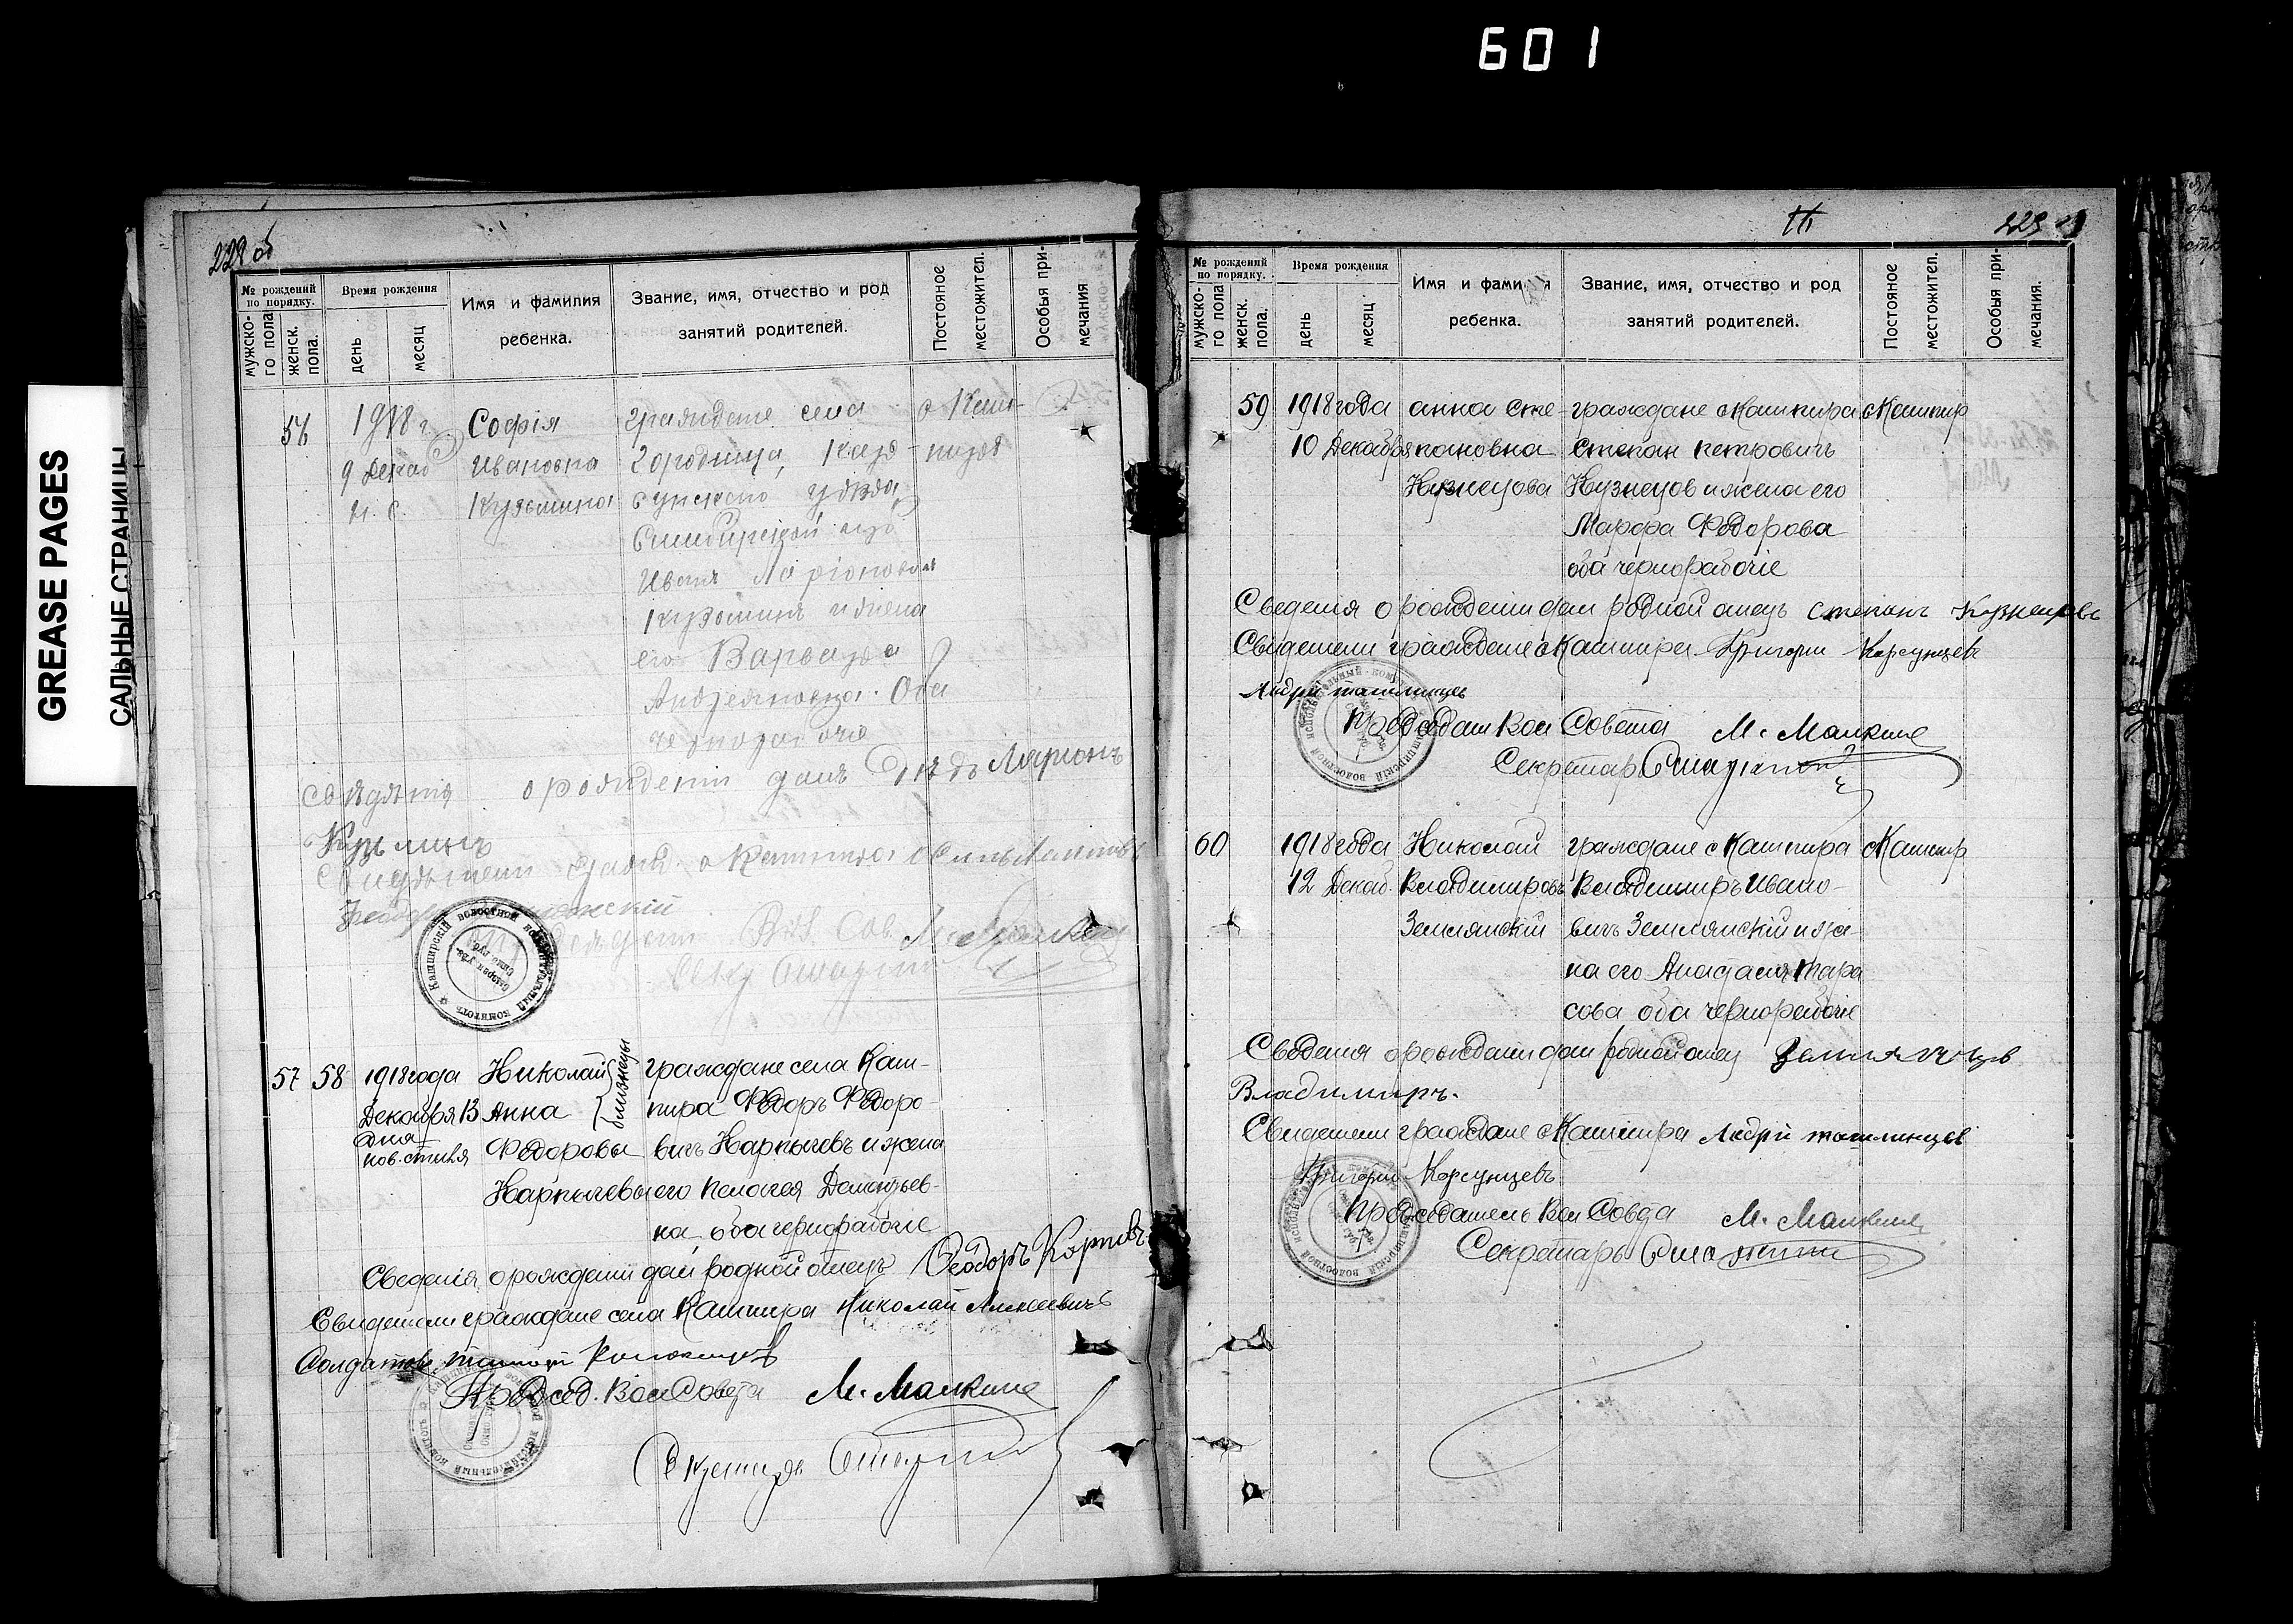 601
GREASE PAGES
САЛЬНЫЕ СТРАНИЦЫ
№ рождений по порядку.
мужско-го пола
женск. пола.
Время рождения
день
месяц
Имя и фамилия ребенка.
Звание, имя, отчество и род занятий родителей.
Постояное местожител.
Особыя при-мечания
56
1918 г.
9 Декаб
н. с.
Софія
Ивановна
Кузьмина
граждане села
Городища,
уѣзда,
Симбирской губ
Иванъ Ларіоновъ
Кузьминъ и жена
его Варвара
Андреяновна. Оба
чернорабочіе
Свѣдѣнія о рожденіи далъ Дѣдъ Ларіонъ
Кузьминъ
57 58
1918 года
Декабря 13
дня
нов. стиля
Николай
Анна
близнецы
Федоровы
Карпычевы
граждане села Каш-
пира Федоръ Федоро-
вичъ Карпычевъ и жена
его Пелагея Дементьев-
на оба чернорабочіе
Сведенія о рождении дал родной отецъ Феодоръ
Свидетели граждане села Кашпира Николай Алексеевичъ
Солдатовъ
Председ. Вол Совета М. Малкин
Секретарь
229
№ рождений по порядку.
мужско-го пола
женск. пола.
Время рождения
день
месяц
Имя и фамилия ребенка.
Звание, имя, отчество и род занятий родителей.
Постояное местожител.
Особыя при-мечания.
59
1918 года
10 Декабря
анна Сте-
пановна
Кузнецова
граждане с Кашпира
Степан Петровичъ
Кузнецов и жена его
Марфа Федорова
оба чернорабочіе
с Кашпир
Сведенія о рождении дал родной отецъ Степанъ Кузнецовъ
Свидетели граждане с Кашпира Григорий Корсунцевъ
Андрей ташлинцевъ
Председат Вол Совета М. Малкин
Секретарь
60
1918 года
12 Декаб.
Николай
Владимировъ
Землянский
граждане с Кашпира
Владимиръ Ивано-
вичъ Землянский и же-
на его Анастасия Тара
сова оба чернорабочіе
с Кашпир
Сведения о рождении дал родной отец
Владимиръ.
Свидетели граждане с Кашпира Андрей ташлинцев
Григорий Корсунцевъ
Председатель Вол Совета М. Малкин
Секретарь